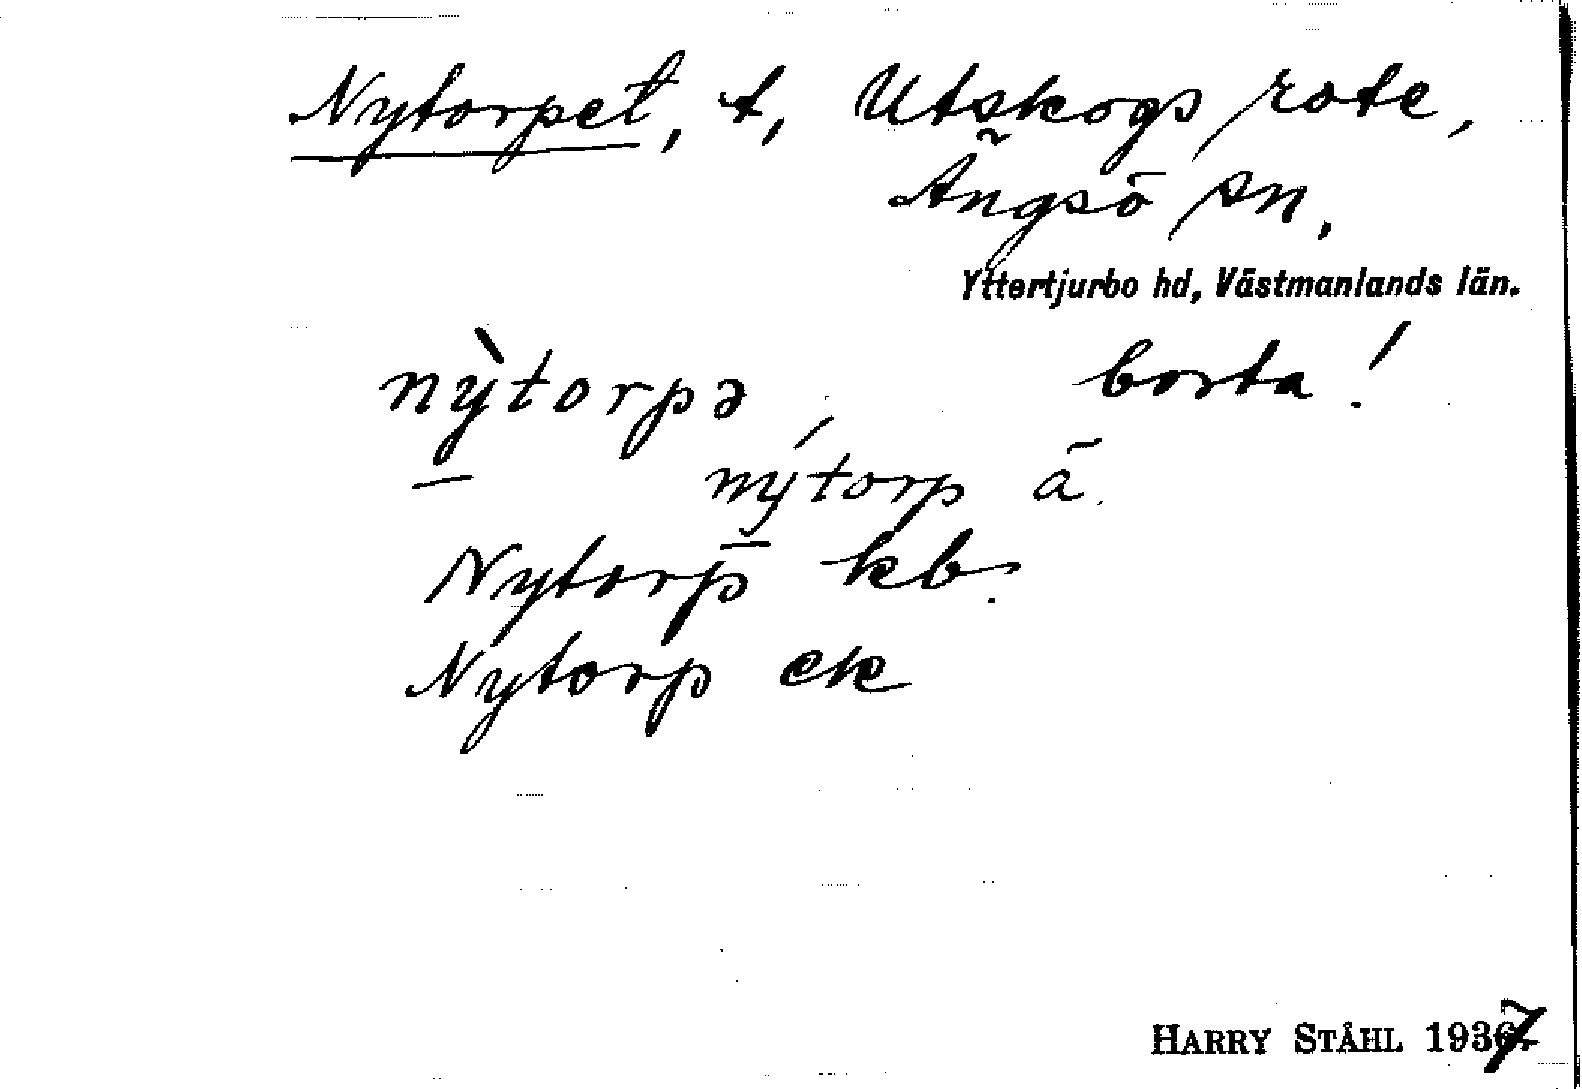 Nytorpet, t, Utskogs rote,
Ängsö sn,
Yttertjurbo hd, Västmanlands län.
nỳtorpə, borta!
nýtorp ä.
Nytorp kb.
Nytorp ek
HARRY STÅHL 1937